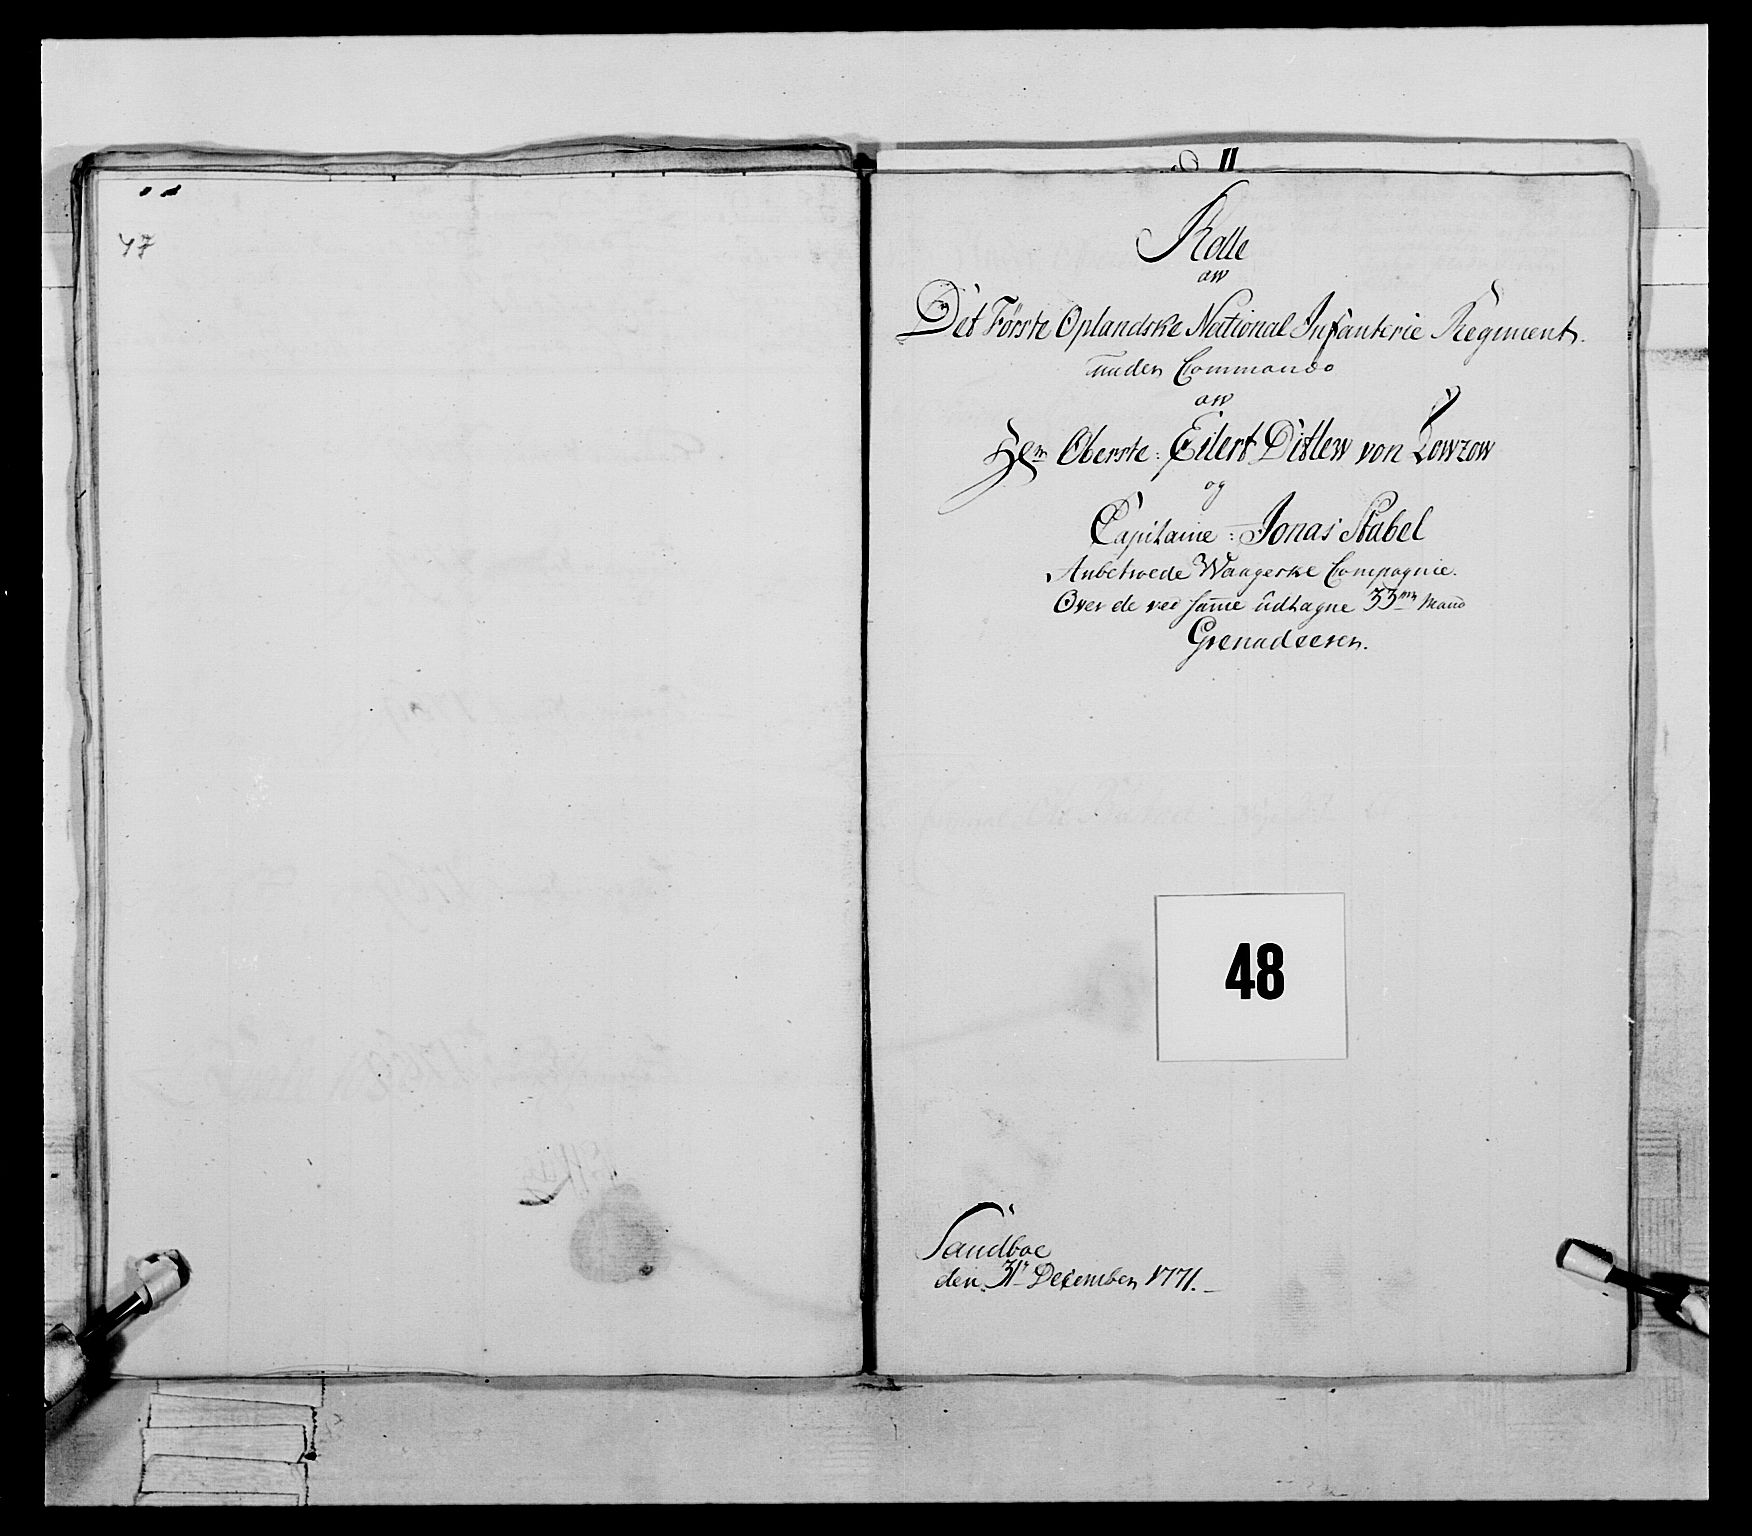 47
II
Rolle
aw
Det Förste Oplandske National Infanterie Regiment.
under Commando
aw
Hrn Oberste: Eilert Ditlew von Lowzow
og
Capitaine: Jonas Stabel
Anbetroede Waagerske Compagnie.
Over de ved samme udtagne 33 Mand
Grenadeerer.
48
Sandboe
den 31te December 1771.